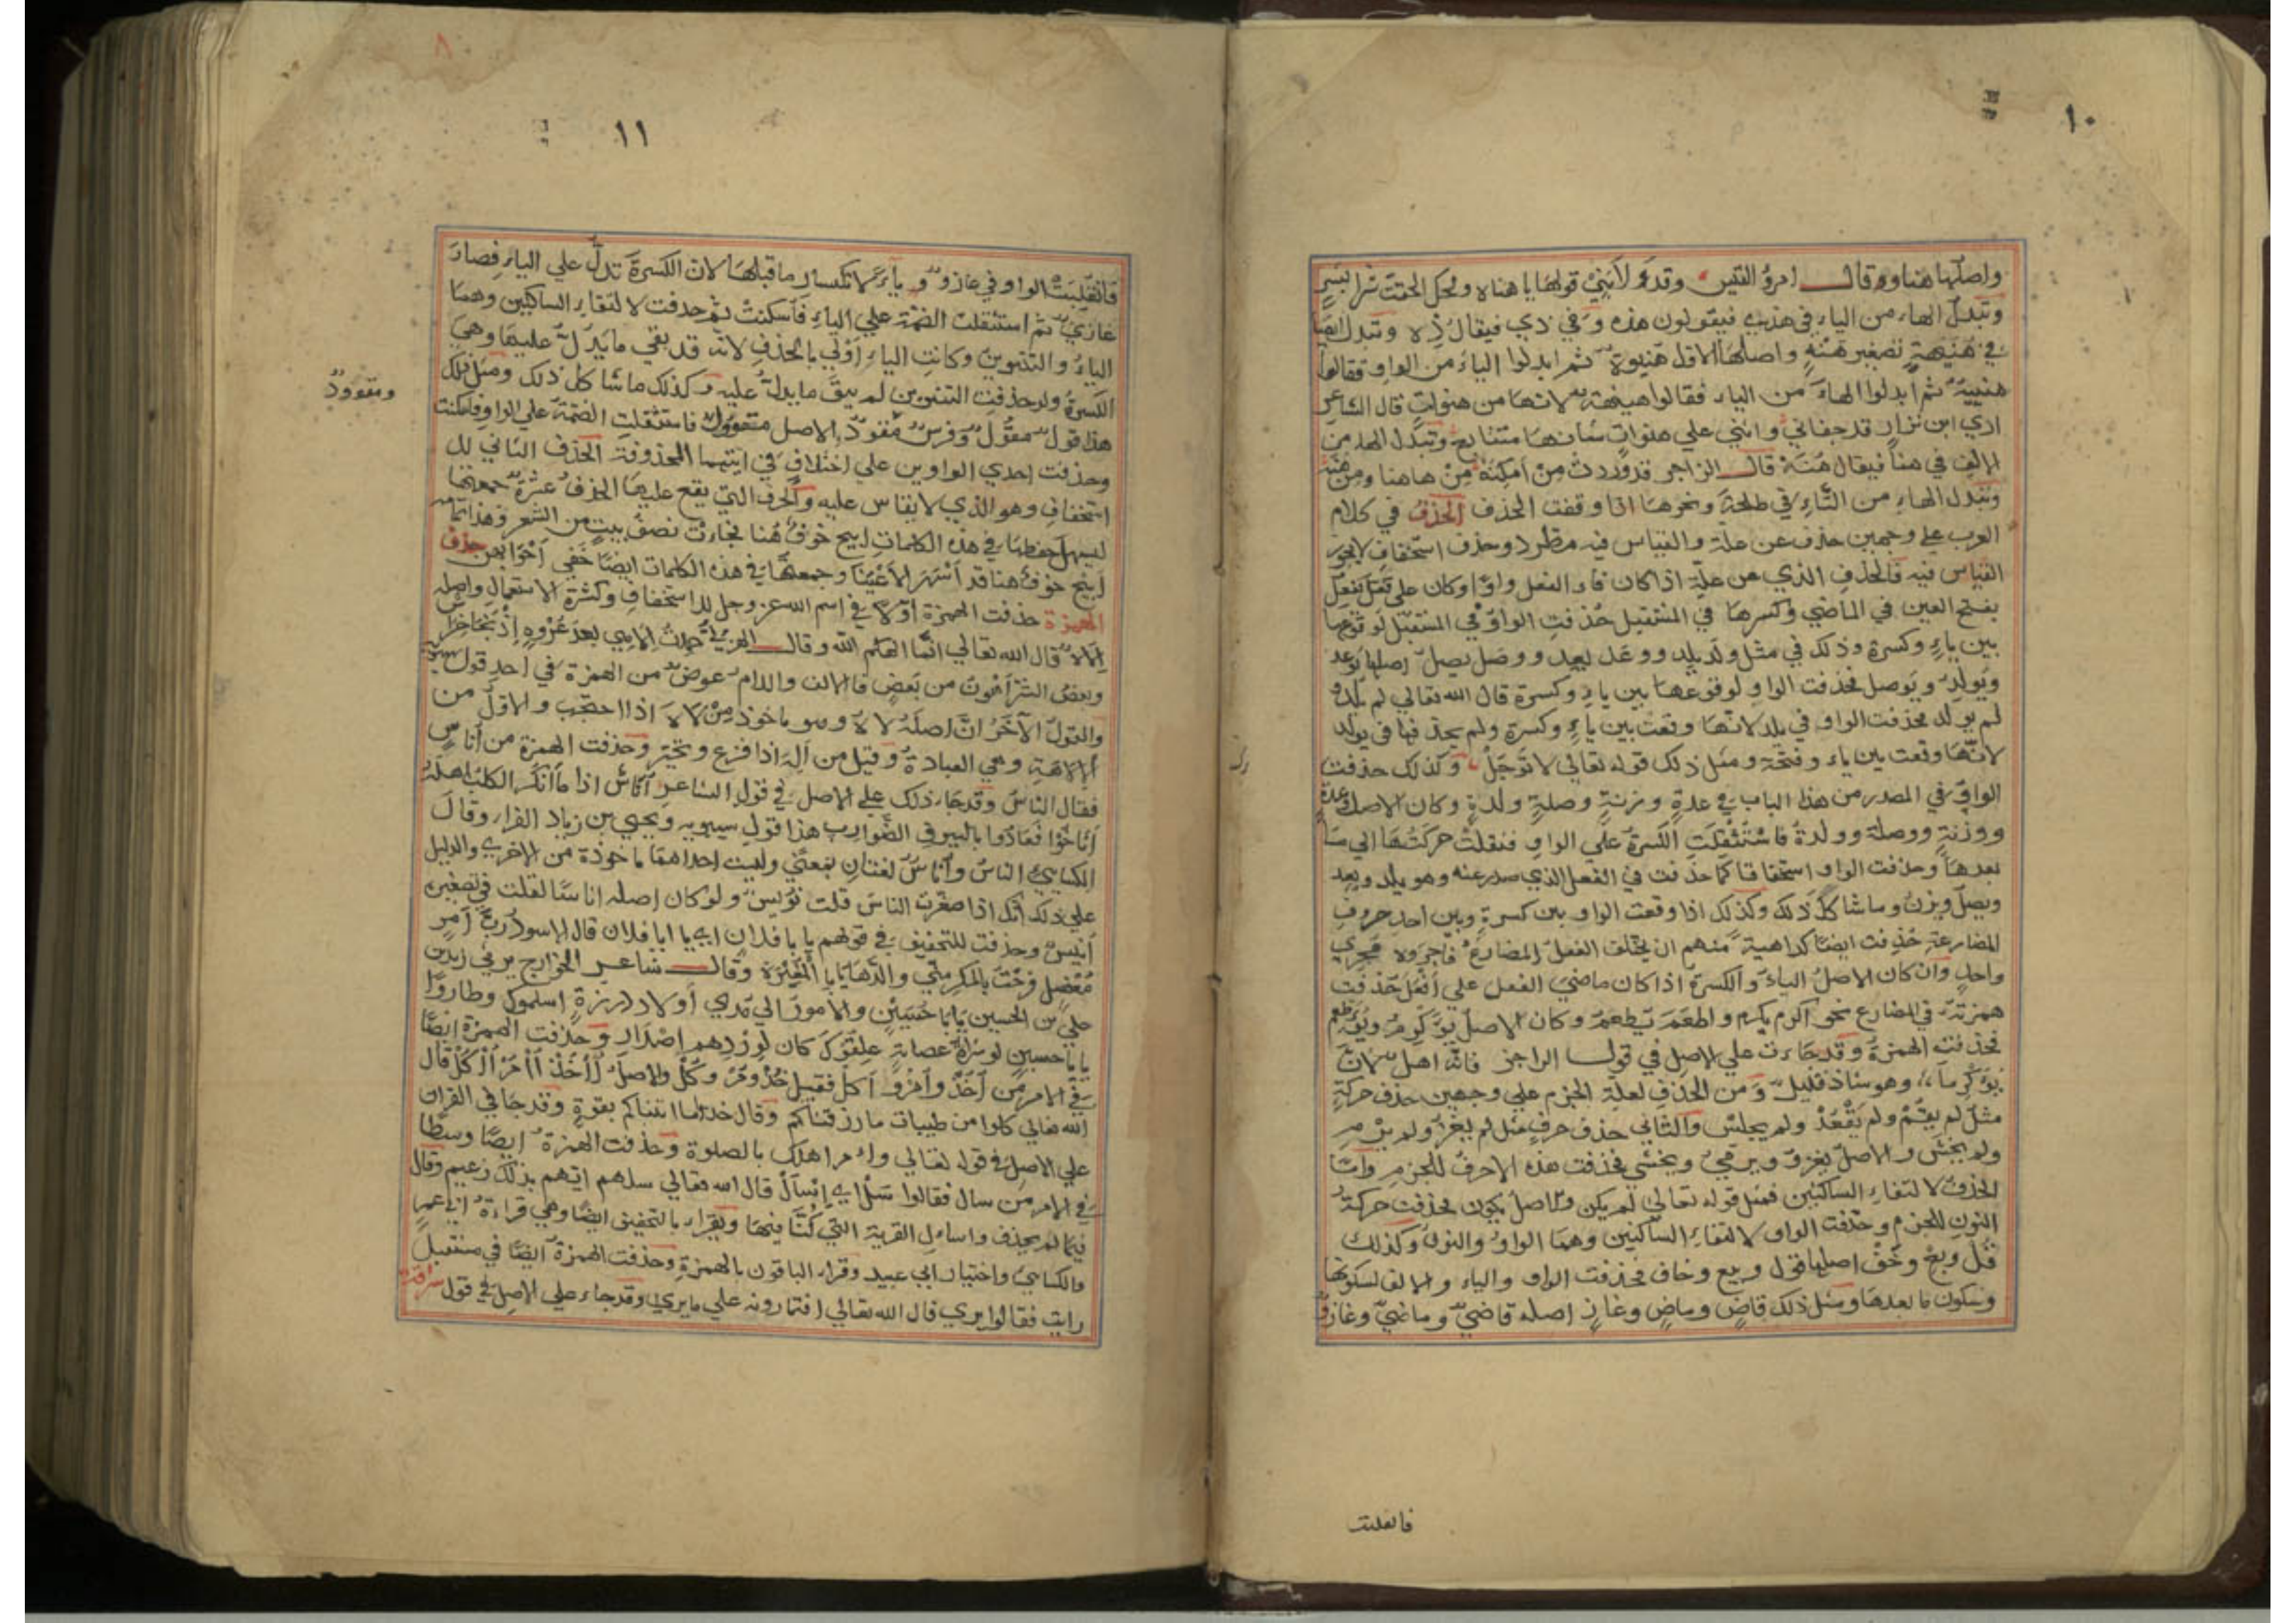 ١٠
واصلها هناو وقال امرؤ القيس وقد رابني قولها يا هناه ويحك الحقت شرا بشر
وتبدل الهاء من الياء في هذي فيقولون هذه وفي ذي فيقال ذه وتبدل ايضا
في هنيهة تصغير هنة واصلها الاول هنيوة ثم ابدلوا الياء من الواو فقالوا
هنيية ثم ابدلوا الهاء من الياء فقالوا هنيهة لانها من هنوات قال الشاعر
اري ابن نزار قد جفاني وانني علي هنوات شانها متتابع وتبدل الهاء من
الالف في هنا فيقال هنه قال الراجز قد وردت من امكنه من هاهنا ومن هنه
وتبدل الهاء من التاء في طلحة ونحوها اذا وقفت الحذف الحذف في كلام
العرب علي وجهين حذف عن علة والقياس فيه مطرد وحذف استخفاف لا يجوز
القياس فيه فالحذف الذي عن علة اذا كان فاء الفعل واوا وكان علي فعل يفعل
بفتح العين في الماضي وكسرها في المستقبل حذفت الواو في المستقبل لوقوعها
بين ياء وكسرة وذلك في مثل ولد يلد ووعد يعد ووصل يصل اصلها يوعد
ويولد ويوصل فحذفت الواو لوقوعها بين ياء وكسرة قال الله تعالي لم يلد و
لم يولد فحذفت الواو في يلد لانها وقعت بين ياء وكسرة ولم يحذفها في يولد
لانها وقعت بين ياء وفتحة ومثل ذلك قوله تعالي لا توجل وكذلك حذفت
الواو في المصدر من هذا الباب في عدة وزنة وصلة ولدة وكان الاصل وعدة
ووزنة ووصلة وولدة فاستثقلت الكسرة علي الواو فنقلت حركتها الي ما
بعدها وحذفت الواو استخفافا كما حذفت في الفعل الذي صدر عنه وهو يلد ويعد
ويصل ويزن وما شاكل ذلك وكذلك اذا وقعت الواو بين كسرة وبين احد حروف
المضارعة حذفت ايضا كراهية منهم ان يختلف الفعل المضارع فاجروه مجري
واحد وان كان الاصل الياء والكسرة اذا كان ماضي الفعل علي افعل حذفت
همزته في المضارع نحو اكرم يكرم واطعم يطعم وكان الاصل يؤكرم ويؤطعم
فحذفت الهمزة وقد جاءت علي الاصل في قول الراجز فانه اهل لان
يؤكرما وهو شاذ قليل ومن الحذف لعلة الجزم علي وجهين حذف حركة
مثل لم يقم ولم يقعد ولم يجلس والثاني حذف حرف مثل لم يغز ولم يرم
ولم يخش والاصل يغزو ويرمي ويخشي فحذفت هذه الاحرف للجزم واما
الحذف لالتقاء الساكنين فمثل قوله تعالي لم يكن والاصل يكون فحذفت حركة
النون للجزم وحذفت الواو لالتقاء الساكنين وهما الواو والنون وكذلك
قل وبع وخف اصلها قول وبيع وخاف فحذفت الواو والياء والالف لسكونها
وسكون ما بعدها ومثل ذلك قاض وماض وغاز اصله قاضي وماضي وغازو
فانقلبت
١١
فانقلبت الواو في غازو ياء لانكسار ما قبلها لان الكسرة تدل علي الياء فصار
غازي ثم استثقلت الضمة علي الياء فاسكنت ثم حذفت لالتقاء الساكنين وهما
الياء والتنوين وكانت الياء اولي بالحذف لانه قد بقي ما يدل عليها وهي
الكسرة ولو حذفت التنوين لم يبق ما يدل عليه وكذلك ما شاكل ذلك ومثل ذلك
هذا قول مقول وفرس مقود الاصل مقوول فاستثقلت الضمة علي الواو فاسكنت
ومقوود
وحذفت احدي الواوين علي اختلاف في ايتهما المحذوفة الحذف الثاني لل
استخفاف وهو الذي لا يقاس عليه والحرف التي يقع عليها الحذف عشرة جمعتها
ليسهل حفظها في هذه الكلمات ابيح خوف هنا فجاءت نصف بيت من الشعر وهذا تمامه
ابيح خوف هنا قد اشهر الاعينا وجمعتها في هذه الكلمات ايضا خفي اخوا بحن حذف
الهمزة حذفت الهمزة اولا في اسم الله عز وجل للاستخفاف وكثرة الاستعمال واصله
الاله قال الله تعالي انما الهكم الله وقال الهزلي حمدت الاهي بعد عروة اذ نجا خراش
وبعض الشر اهون من بعض فالالف واللام عوض من الهمزة في احد قول سيبويه
والقول الآخر ان اصله لاه وهو ماخوذ من لاه اذا احتجب والاول من
الالاهة وهي العبادة وقيل من اله اذا فزع وتحير وحذفت الهمزة من اناس
فقال الناس وقد جاء ذلك علي الاصل في قول الشاعر اناس اذا ما انكر الكلب اهله
اناخوا فعاذوا بالسيوف الضوارب هذا قول سيبويه ويحيي بن زياد الفراء وقال
الكسايي الناس واناس لغتان بمعني وليست احداهما ماخوذة من الاخري والدليل
علي ذلك انك اذا صغرت الناس قلت نويس ولو كان اصله اناسا لقلت في تصغيره
انيس وحذفت للتخفيف في قولهم يا با فلان اي يا ابا فلان قال الاسود رب امر
معضل فرجت بالمكر مني والدها يا با المغيرة وقال شاعر الخوارج يرثي زيد بن
علي بن الحسين يا با حسين والامور الي مدي اولاد درزة اسلموك وطاروا
يا با حسين لو شراة عصابة علقوك كان لوردهم اصدار وحذفت الهمزة ايضا
في الامر من اخذ وامر واكل فقيل خذ ومر وكل والاصل أأخذ أأمر أأكل قال
الله تعالي كلوا من طيبات ما رزقناكم وقال خذوا ما اتيناكم بقوة وقد جا في القران
علي الاصل في قوله تعالي وامر اهلك بالصلوة وحذفت الهمزة ايضا وسطا
في الامر من سال فقالوا سل اي اسأل قال الله تعالي سلهم ايهم بذلك زعيم وقال
فيما لم يحذف واساءل القرية التي كنا فيها ويقراء بالتخفيف ايضا وهي قراءة ابي عمر
والكسايي واختيار ابي عبيد وقراء الباقون بالهمزة وحذفت الهمزة ايضا في مستقبل
رايت فقالوا يري قال الله تعالي افتمارونه علي ما يري وقد جاء علي الاصل في قول سراقة